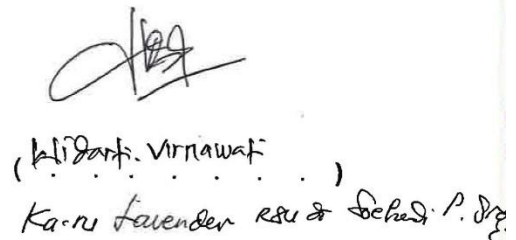 (Widarti. Virnawati)
Ka-ru Lavender RSU dr Soehadi. P.